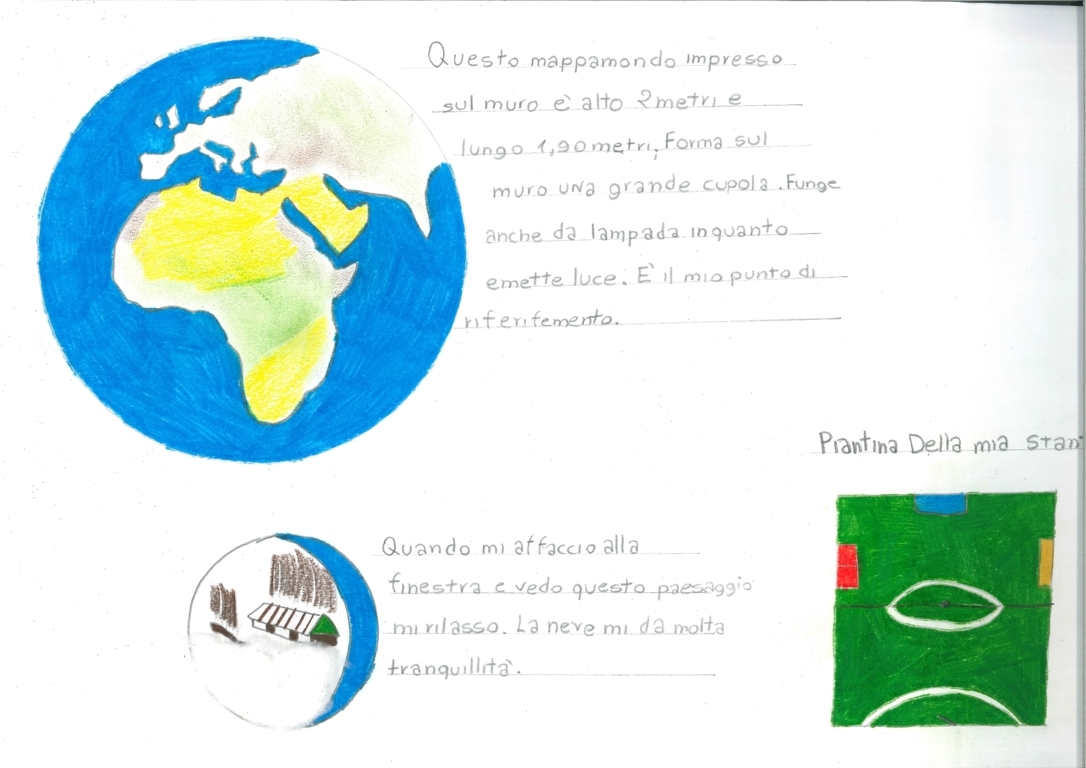 Questo mappamondo impresso
sul muro è alto 2 metri e
lungo 1,90 metri, Forma sul
muro una grande cupola. Funge
anche da lampada in quanto
emette luce. E' il mio punto di
riferifemento.
Piantina Della mia stan
Quando mi affaccio alla
finestra e vedo questo paesaggio
mi rilasso. La neve mi da molta
tranquillità.